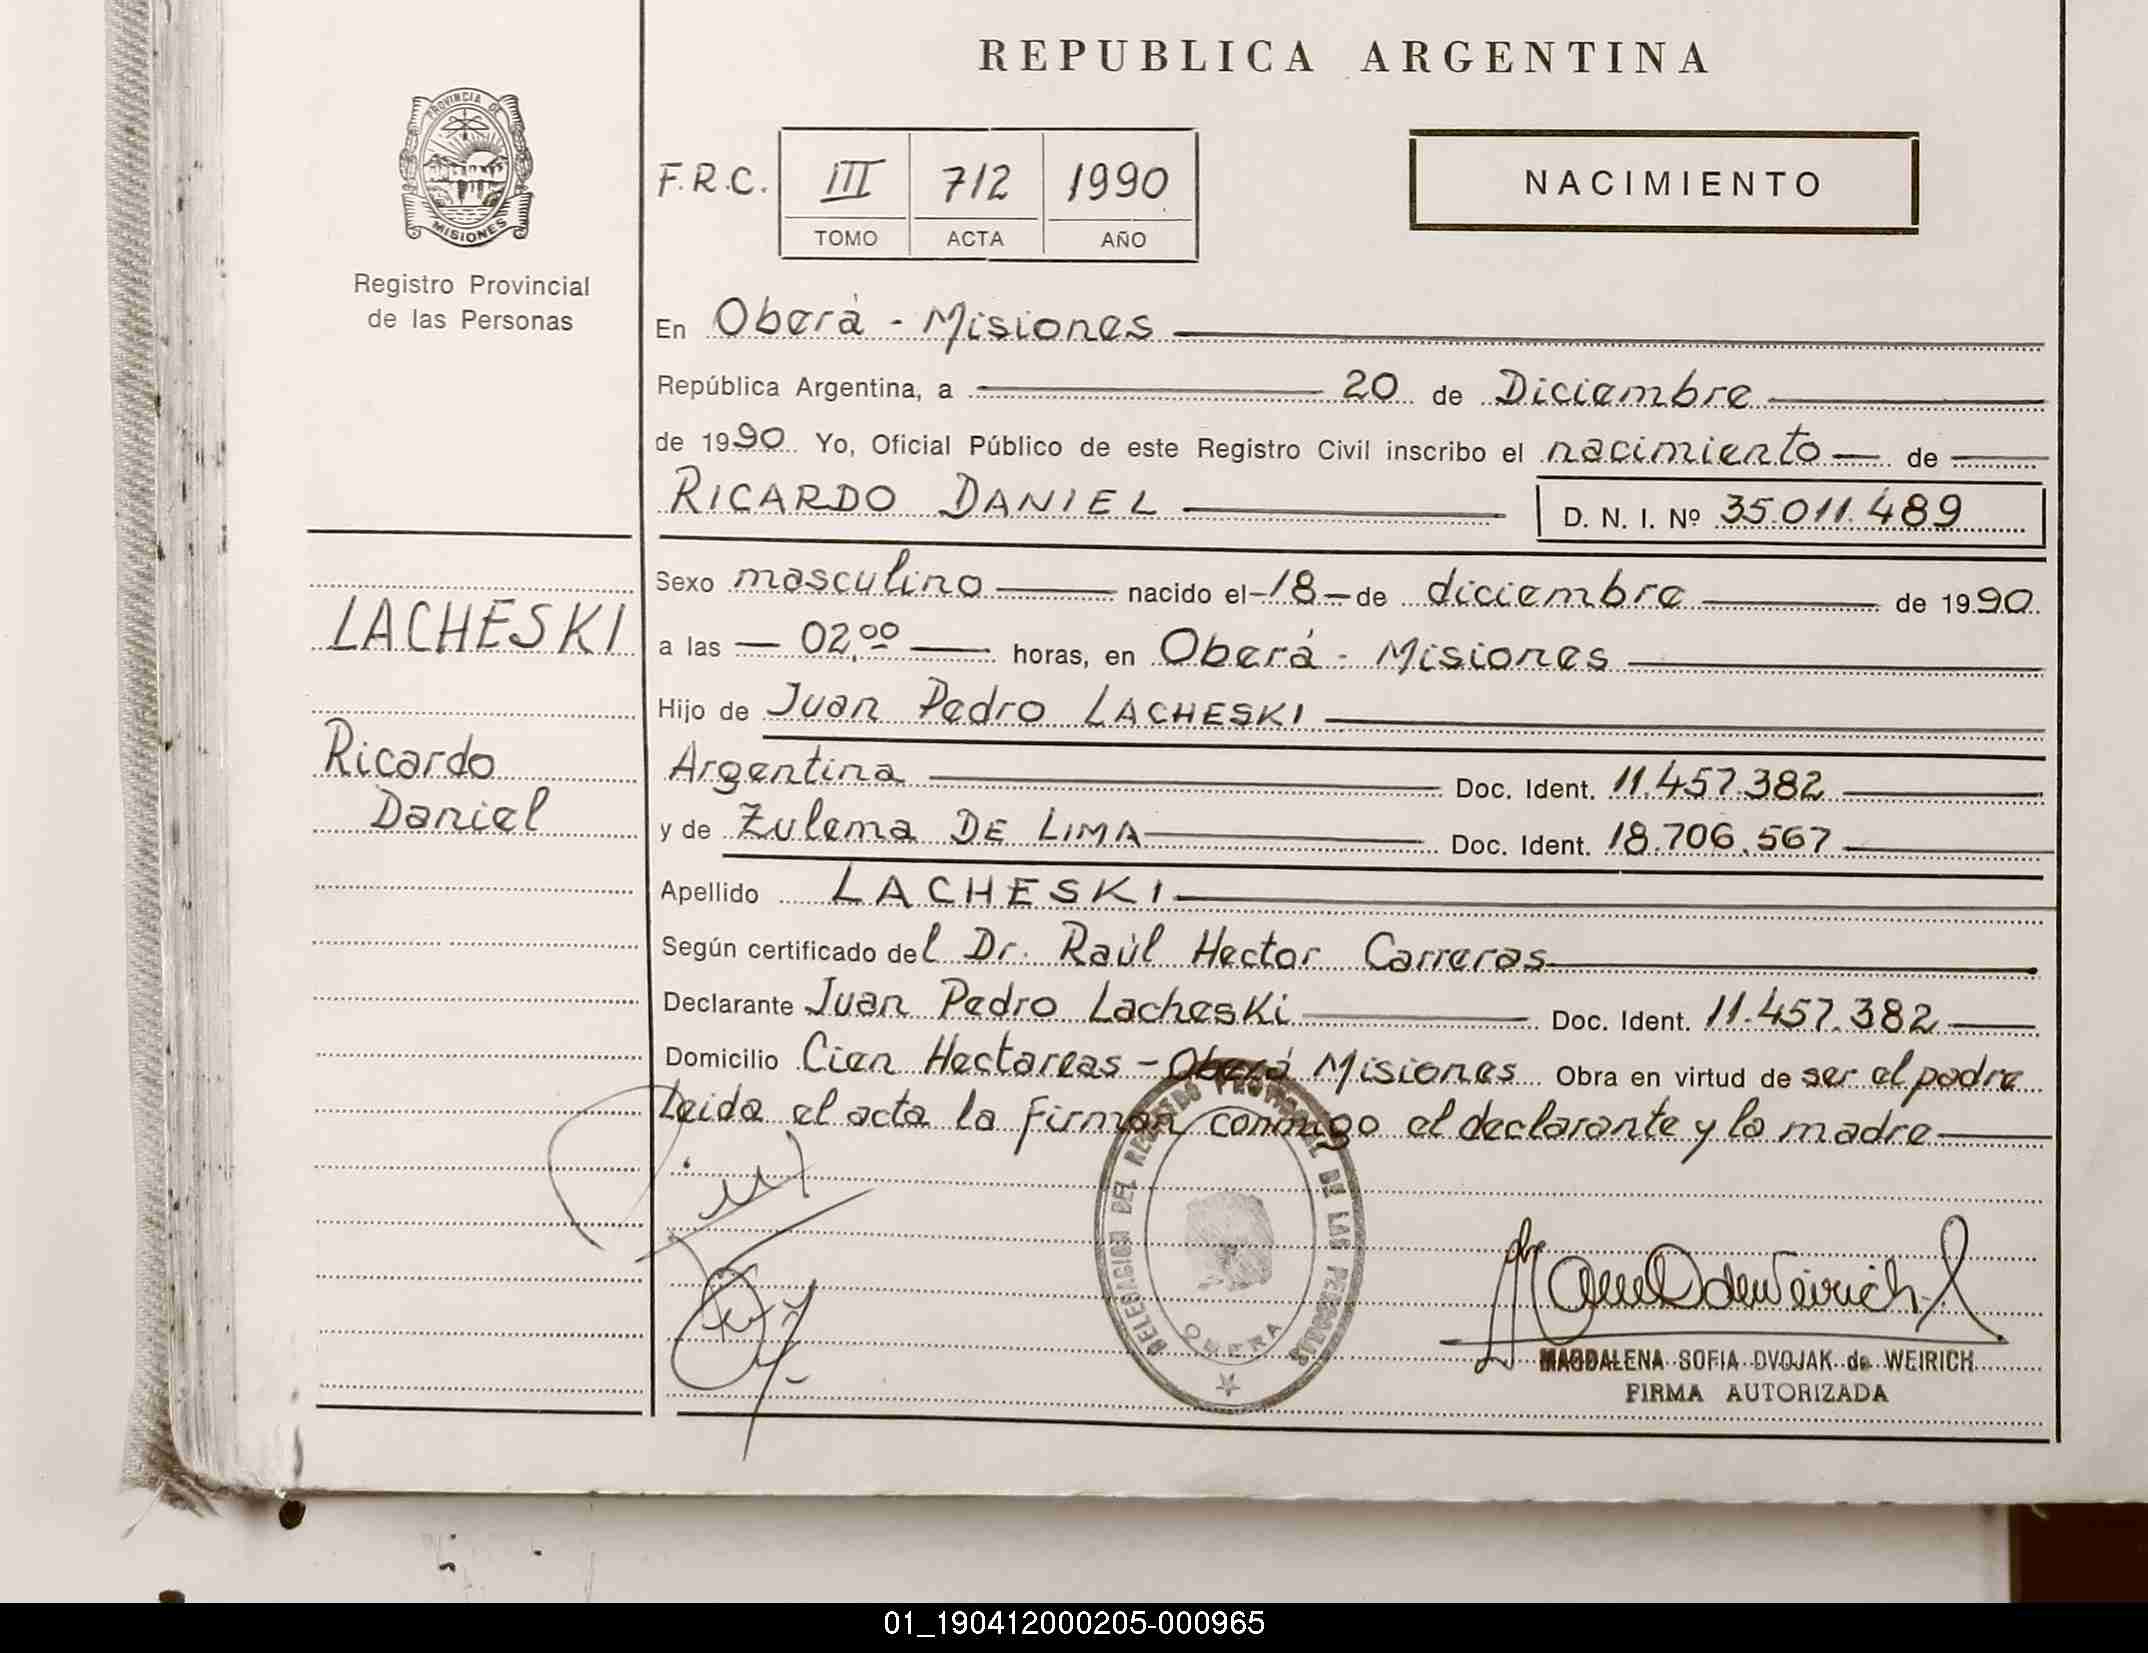 REPUBLICA ARGENTINA
PROVINCIA DE
MISIONES
Registro Provincial
de las Personas
F.R.C. III 712 1990
TOMO ACTA AÑO
NACIMIENTO
En Oberá - Misiones
República Argentina, a 20 de Diciembre
de 1990 Yo, Oficial Público de este Registro Civil inscribo el nacimiento de
RICARDO DANIEL D. N. I. Nº 35.011.489
Sexo masculino nacido el 18 de diciembre de 1990
LACHESKI
a las 02,00 horas, en Oberá - Misiones
Hijo de Juan Pedro LACHESKI
Ricardo
Daniel
Argentina Doc. Ident. 11.457.382
y de Zulema DE LIMA Doc. Ident. 18.706.567
Apellido LACHESKI
Según certificado del Dr. Raúl Hector Carreras
Declarante Juan Pedro Lacheski Doc. Ident. 11.457.382
Domicilio Cien Hectareas - Oberá Misiones Obra en virtud de ser el padre
Leida el acta la firman conmigo el declarante y la madre
DELEGACION DEL REGISTRO PROVINCIAL DE LAS PERSONAS
OBERA
MAGDALENA SOFIA DVOJAK de WEIRICH
FIRMA AUTORIZADA
01_190412000205-000965